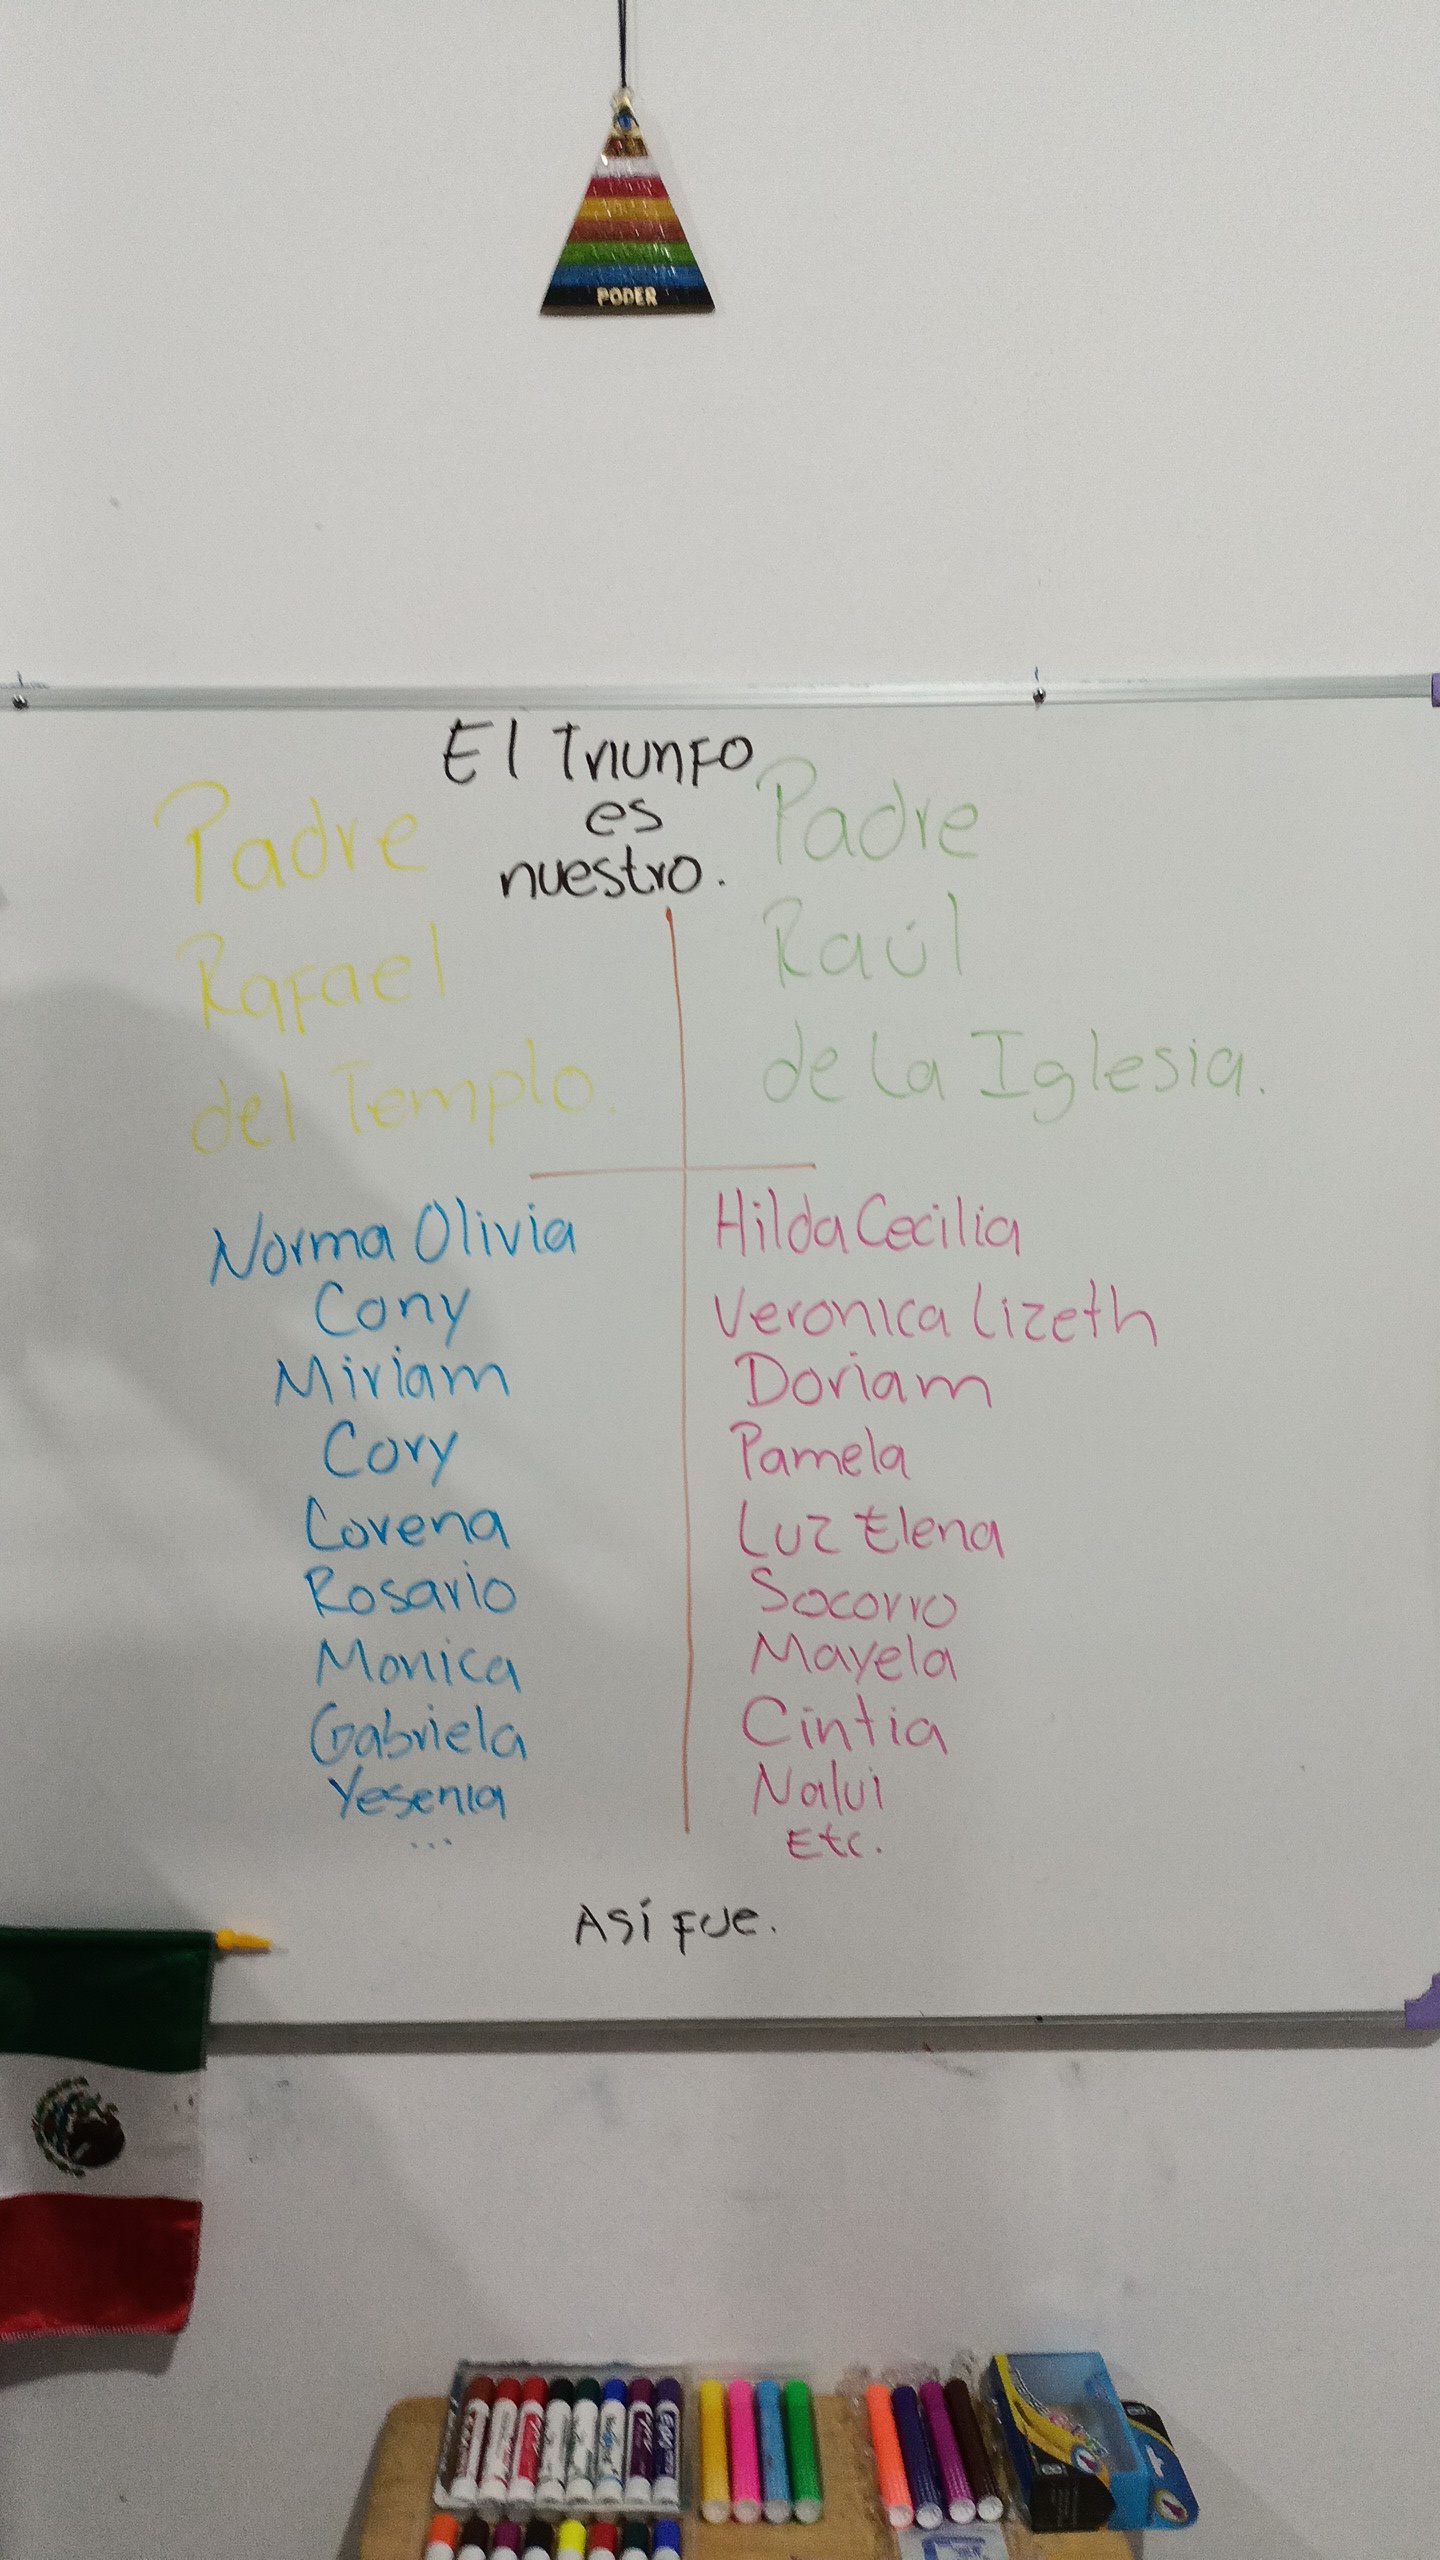 PODER
El Triunfo
es
nuestro.
Padre
Rafael
del Templo.
Padre
Raúl
de La Iglesia.
Norma Olivia
Cony
Miriam
Cory
Corena
Rosario
Monica
Gabriela
Yesenia
...
Hilda Cecilia
Veronica Lizeth
Doriam
Pamela
Luz Elena
Socorro
Mayela
Cintia
Nalui
Etc.
Así fue.